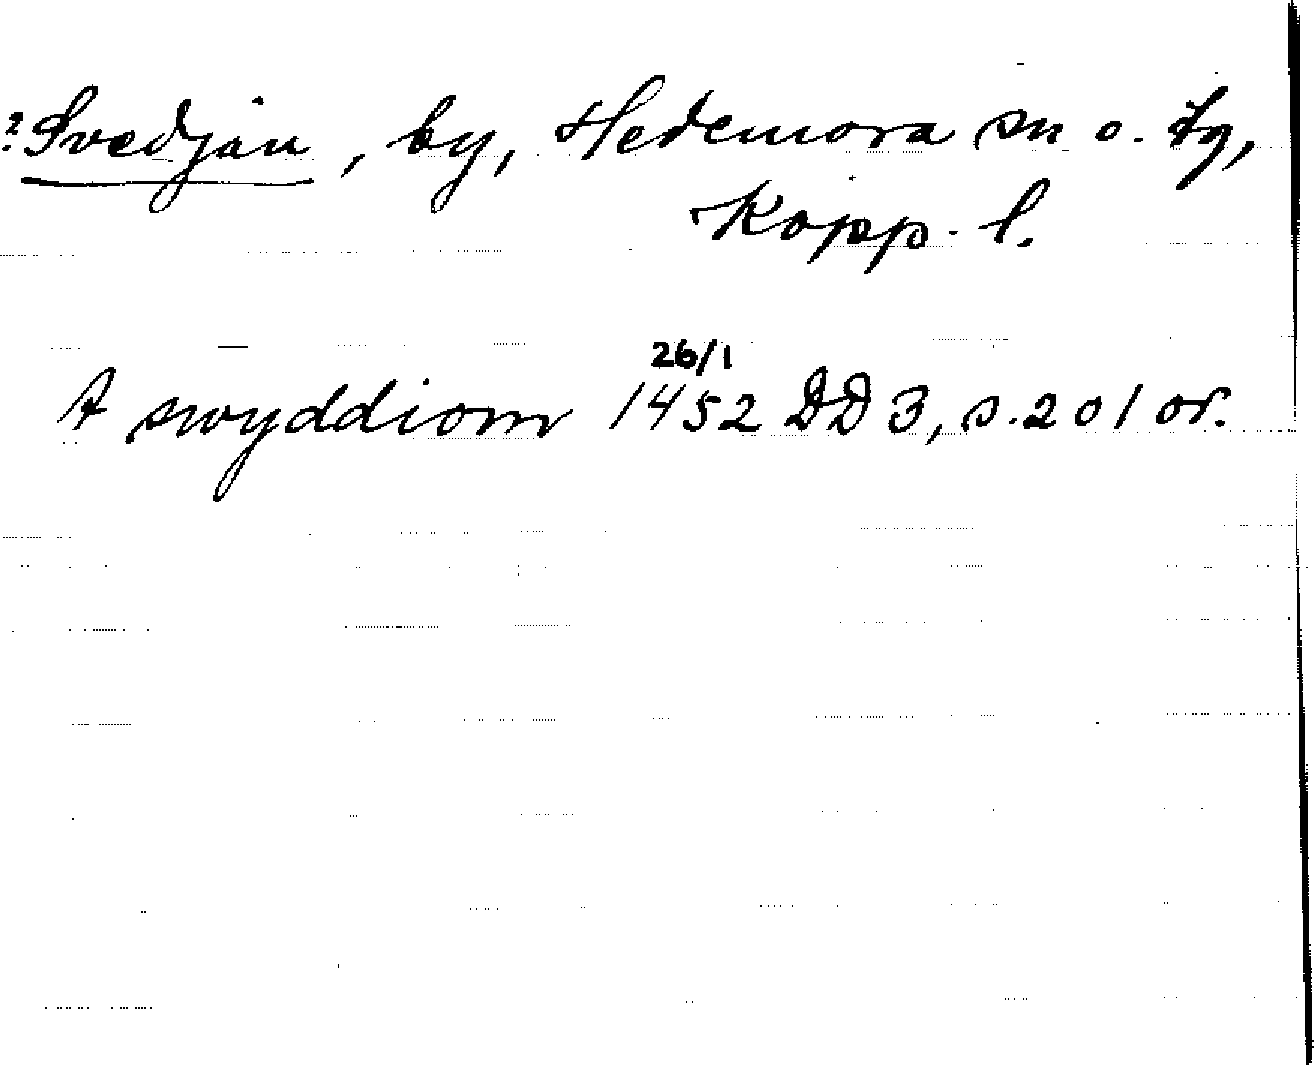 ? Svedjån, by, Hedemora sn o. tg,
Kopp. l.
26/1
A swyddiom 1452 DD 3, s. 201 or.